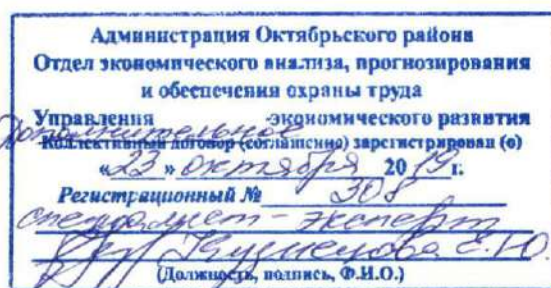 Администрация Октябрьского района
Отдел экономического анализа, прогнозирования
и обеспечения охраны труда
Управления экономического развития
Дополнительное
Коллективный договор (соглашение) зарегистрирован (о)
«23» октября 2019 г.
Регистрационный № 308
специалист - эксперт
Кузнецова Е.Ю.
(Должность, подпись, Ф.И.О.)